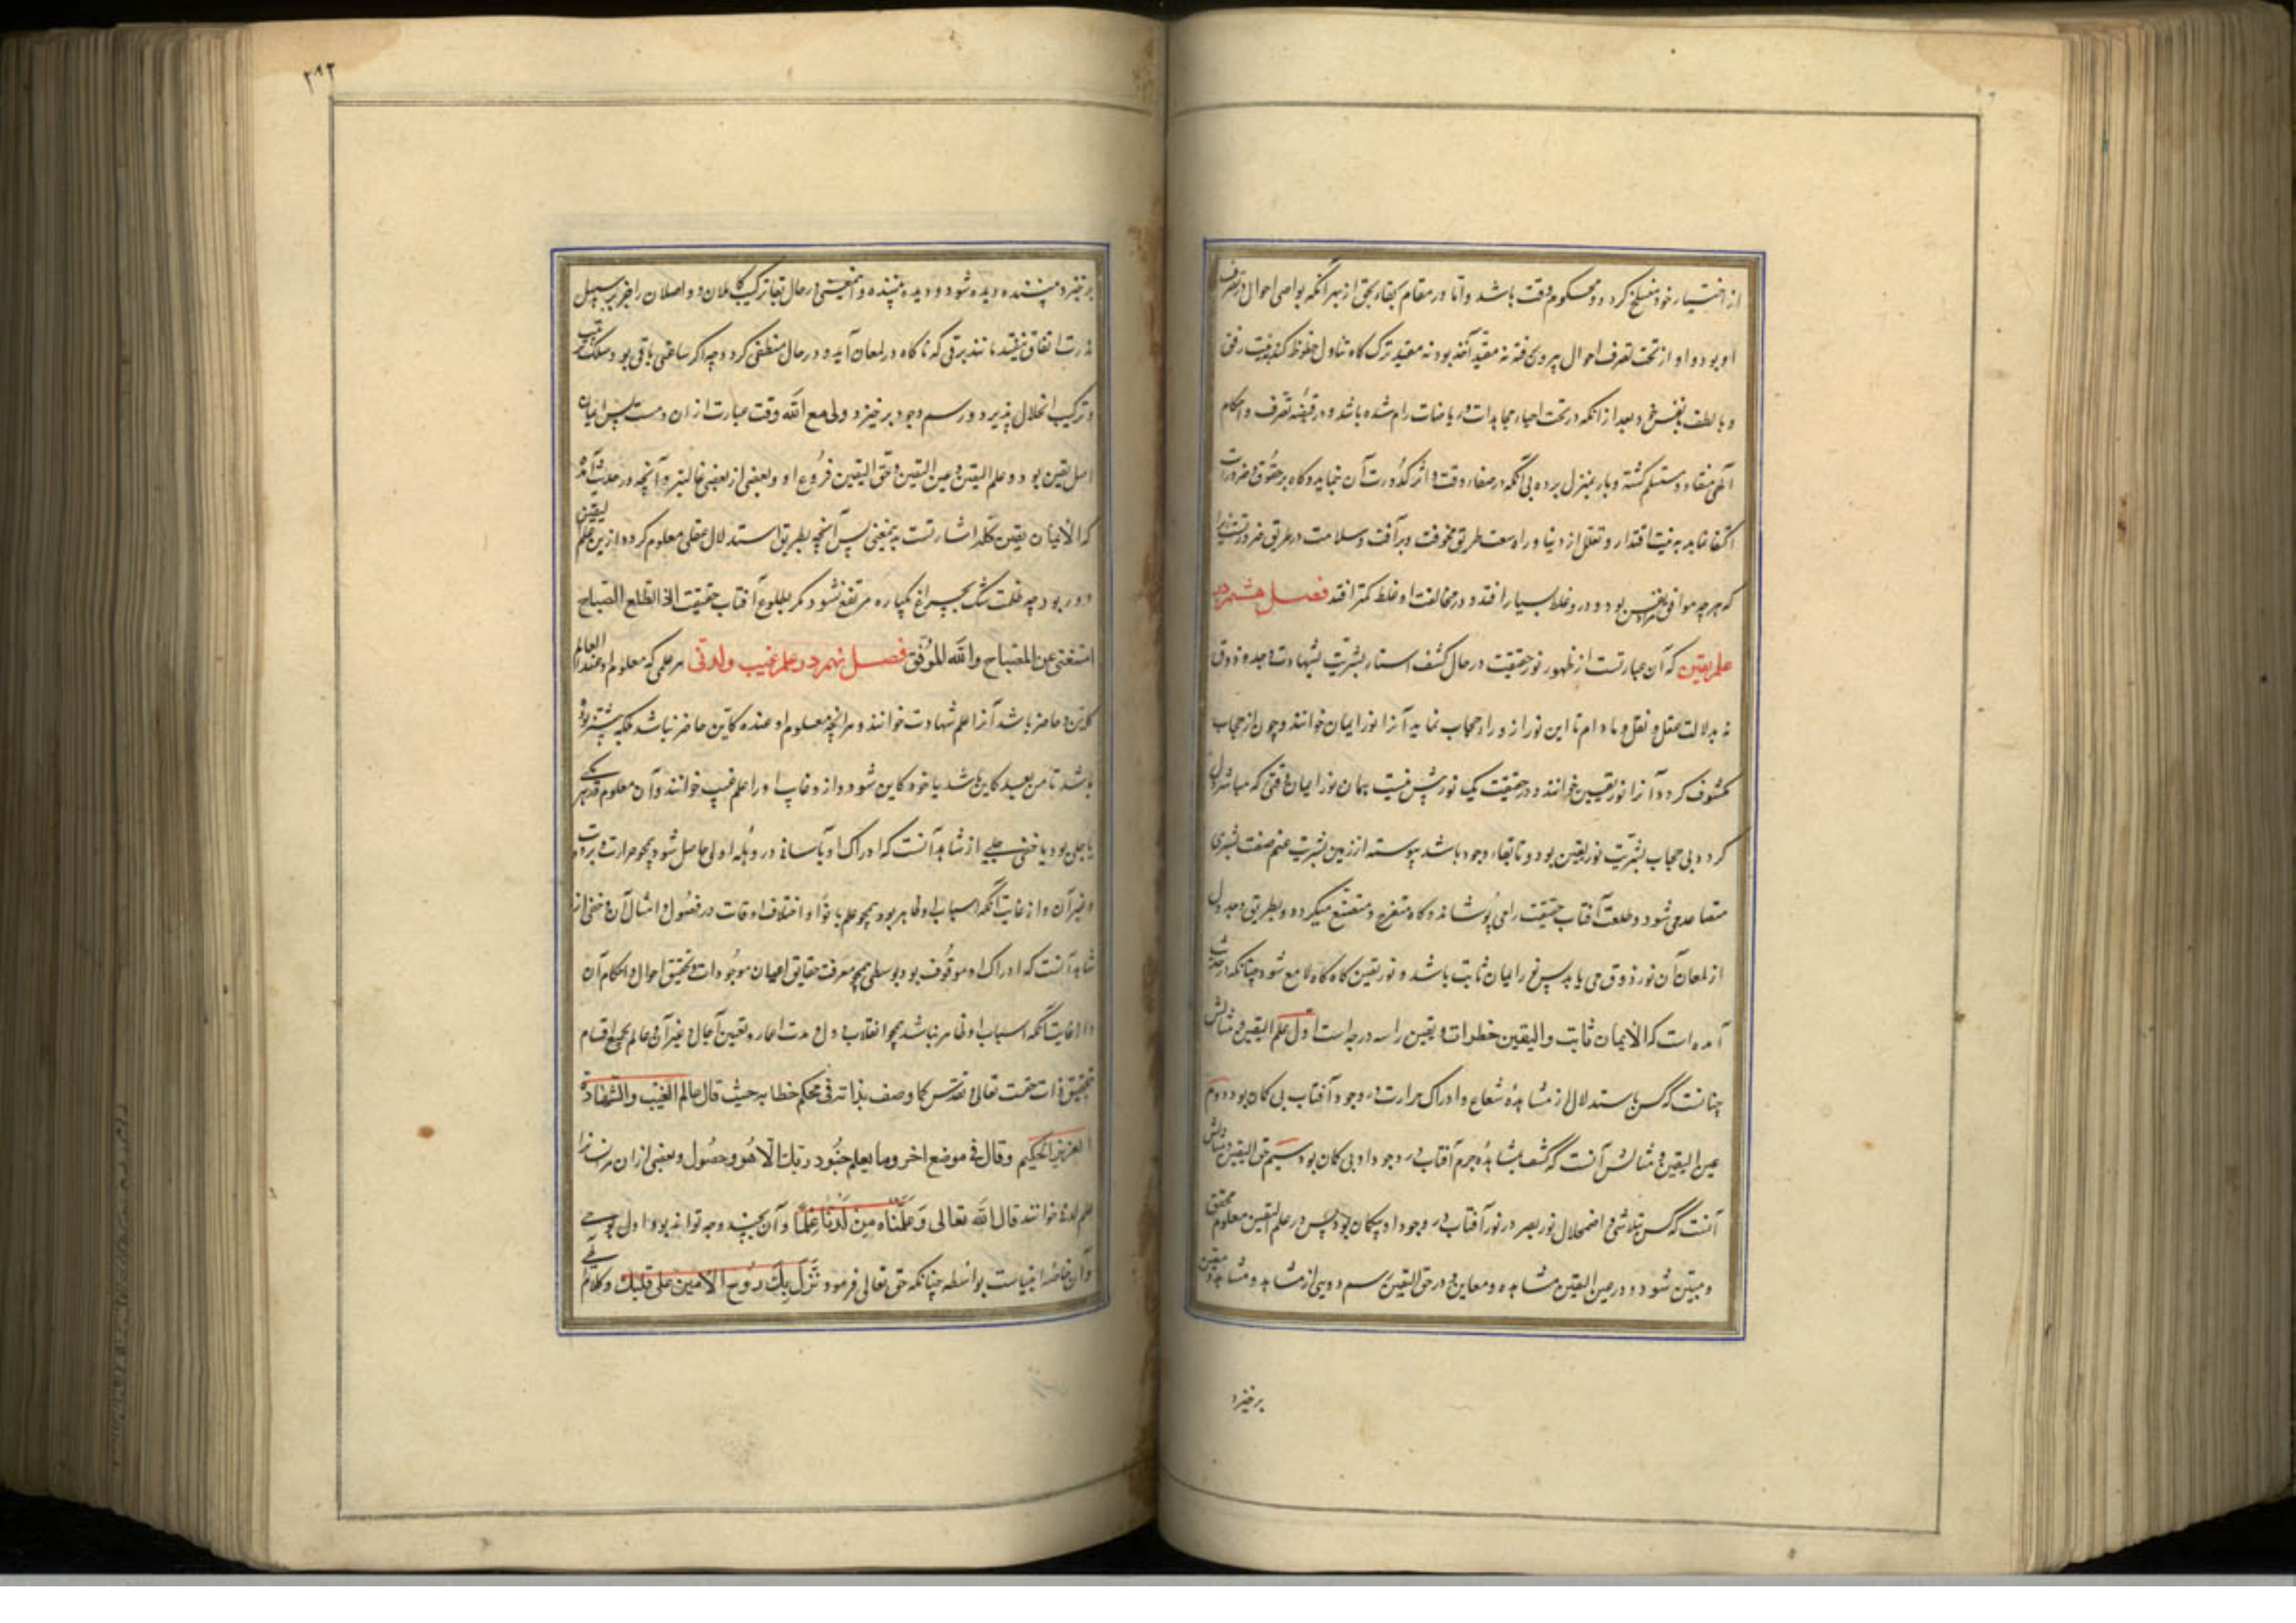 از اختیار خود منسلخ کردد و محکوم وقت باشد و اما در مقام بقاء بحق از بهر آنکه نواصی احوال در تصرف
او بود و او از تحت تصرف احوال بیرون رفته نه مقید اخذ بود نه مقید ترک کاه تناول حظوظ کند به نیت رفق
و با لطف با نفس خود بعد از آنکه در تحت احیاء مجاهدات و ریاضات رام شده باشد و در قبضه تصرف و احکام
الهی منقاد و مستسلم کشته و بار بمنزل برده بی آنکه در صفاء وقت او اثر کدورت آن نماید و کاه بر حقوق و ضرورات
اکتفا نماید به نیت اقتدار و تقلل از دنیا و راه سعت طریق مخوفت و پر آفت و سلامت در طریق ضرورتست زیرا
که هرچه موافق مراد نفس بود و درو غلط بسیار افتد و در مخالفت او غلط کمتر افتد فصل هشتم در
علم یقین که آن عبارتست از ظهور نور حقیقت در حال کشف استار بشریت بشهادت وجد و ذوق
نه بدلالت عقل و نقل و مادام تا این نور از وراء حجاب نماید آنرا نور ایمان خوانند و چون از حجاب
مکشوف کردد آنرا نور یقین خوانند و در حقیقت یک نور بیش نیست همان نور ایمان وقتی که مباشر دل
کردد بی حجاب بشریت نور یقین بود و تا بقاء وجود باشد پیوسته از زمین بشریت غیم صفت بشری
متصاعد می شود و طلعت آفتاب حقیقت را می پوشاند و کاه متفرج و منقشع میکردد و بطریق وجد دل
از لمعان آن نور ذوق می یابد پس نور ایمان ثابت باشد و نور یقین کاه کاه لامع شود چنانکه در حدیث
آمده است که الایمان ثابت والیقین خطرات و یقین را سه درجه است اول علم الیقین و مثالش
چنانست که کسی باستدلال از مشاهدهٔ شعاع و ادراک حرارت در وجود آفتاب بی کمان بود دوم
عین الیقین و مثالش آنست که کسی بمشاهده جرم آفتاب در وجود او بی کمان بود سیم حق الیقین و مثالش
آنست که کسی بتلاشی و اضمحلال نور بصر در نور آفتاب در وجود او بیکمان بود پس در علم الیقین معلوم محقق
و مبین شود و در عین الیقین مشاهده و معاین و در حق الیقین رسم دویی از مشاهد و مشاهده و معین
برخیزد
۲۹۲
برخیزد و بیننده دیده شود و دیده بیننده و این معنی در حال بقاء ترکیب کاملان و واصلان را جز بر سبیل
ندرت اتفاق نیفتد مانند برقی که ناکاه در لمعان آید و در حال منطفی کردد چه اکر ساعتی باقی بود سلک ترتیب
و ترکیب انحلال پذیرد و رسم وجود برخیزد ولی مع الله وقت عبارت از ان دمست پس ایمان
اصل یقین بود و علم الیقین و عین الیقین و حق الیقین فروع او و بعضی از بعضی عالیتر و آنچه در حدیث آمده
که الایمان یقین کله اشارتست به معنی پس آنچه بطریق استدلال عقلی معلوم کردد از یقین علم
دور بود چه ظلمت شک بچراغ یکباره مرتفع نشود مکر بطلوع آفتاب حقیقت اذا طلع الصباح
استغنی عن المصباح والله الموفق فصل نهم در علم غیب و لدنی هر علمی که معلوم او عند العالم
کاین و حاضر باشد آنرا علم شهادت خوانند و هر آنچه معلوم او عنده کاین و حاضر نباشد بلکه پیشتر بوده
باشد تا من بعید کاین باشد یا خود کاین شود و ازو غایب او را علم غیب خوانند و آن معلوم هر یکی
یا جلی بود یا خفی جلی از شاهد آنست که ادراک او بآسانی در وهله اولی حاصل شود همچو حرارت و برودت
و غیر آن و از غایب آنکه اسباب او ظاهر بود همچو علم و اختلاف اوقات در فصول و امثال آن و خفی از
شاهد آنست که ادراک او موقوف بود بوسطی همچو معرفت حقایق اعیان موجودات و تحقیق احوال و احکام آن
و از غایب آنکه اسباب او ظاهر نباشد همچو انقلاب دول و مدت اعمار و تعیین آجال و غیر آن و عالم بجمیع اقسام
بتحقیق ذات حقست تعالی و تقدس کما وصف بذاته فی محکم خطابه حیث قال عالم الغیب والشهادة
العزیز الحکیم وقال فی موضع اخر وما یعلم جنود ربک الا هو و حصول بعضی از ان مر انسان را
علم لدنی خوانند قال الله تعالی وعلمناه من لدنا علما و آن بچند وجه تواند بود اول بوحی
و آن خاصه انبیاست بواسطه چنانکه حق تعالی فرمود نزل به الروح الامین علی قلبک و کلام